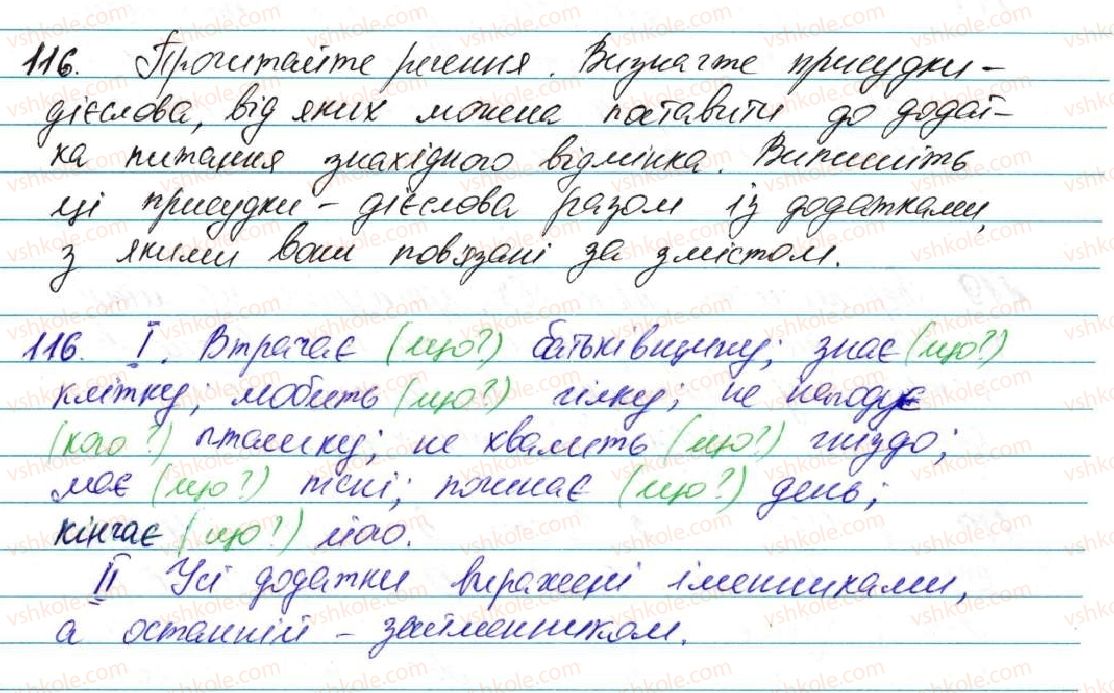 116. Прочитайте речення. Визначте присудки-
дієслова, від яких можна поставити до додат-
ка питання знахідного відмінка. Випишіть
ці присудки - дієслова разом із додатками,
з якими вони пов'язані за змістом.
116. I. Втрачає (що?) батьківщину; знає (що?)
клітку; любить (що?) гілку; не нагодує
(кого?) пташку; не хвалить (що?) гніздо;
має (що?) пісні; починає (що?) день;
кінчає (що?) його.
II Усі додатки виражені іменниками,
а останній - займенником.